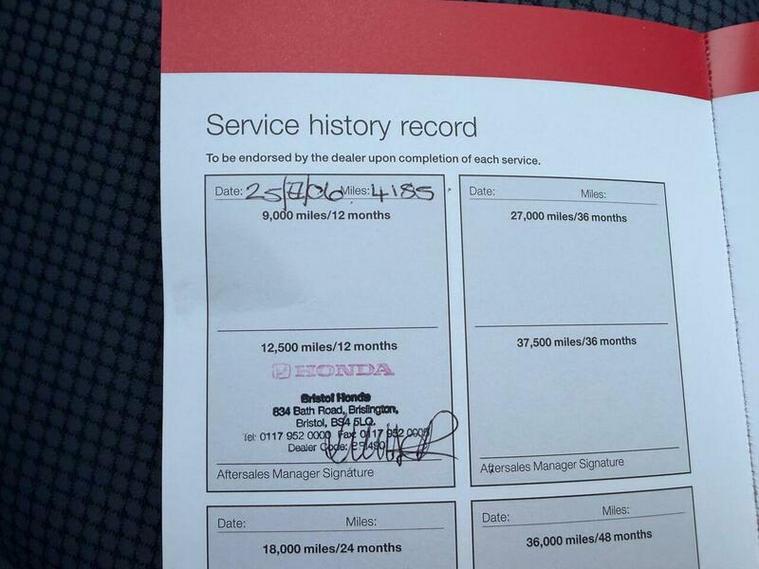 Service history record
To be endorsed by the dealer upon completion of each service.
Date: 25/7/06 Miles: 4185
9,000 miles/12 months
12,500 miles/12 months
HONDA
Bristol Honda
834 Bath Road, Brislington,
Bristol, BS4 5LQ.
Tel: 0117 952 0000 Fax: 0117 952 0005
Dealer Code:
Aftersales Manager Signature
Date: Miles:
27,000 miles/36 months
37,500 miles/36 months
Aftersales Manager Signature
Date: Miles:
18,000 miles/24 months
Date: Miles:
36,000 miles/48 months